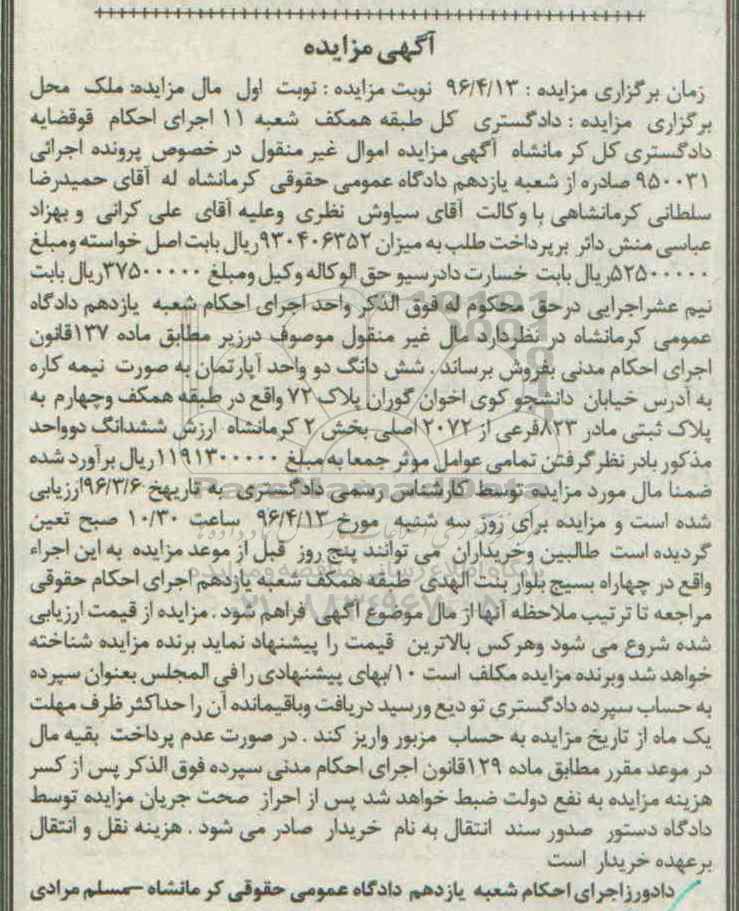 آگهی مزایده
زمان برگزاری مزایده : ۹۶/۴/۱۳ نوبت مزایده : نوبت اول مال مزایده: ملک محل
برگزاری مزایده : دادگستری کل طبقه همکف شعبه ۱۱ اجرای احکام قوقضایه
دادگستری کل کر مانشاه آگهی مزایده اموال غیر منقول در خصوص پرونده اجرائی
۹۵۰۰۳۱ صادره از شعبه یازدهم دادگاه عمومی حقوقی کرمانشاه له آقای حمیدرضا
سلطانی کرمانشاهی با وکالت آقای سیاوش نظری وعلیه آقای علی کرانی و بهزاد
عباسی منش دائر برپرداخت طلب به میزان ۹۳۰۴۰۶۳۵۲ریال بابت اصل خواسته ومبلغ
۵۲۵۰۰۰۰۰ریال بابت خسارت دادرسیو حق الوکاله وکیل ومبلغ ۳۷۵۰۰۰۰۰ریال بابت
نیم عشراجرایی درحق محکوم له فوق الذکر واحد اجرای احکام شعبه یازدهم دادگاه
عمومی کرمانشاه در نظردارد مال غیر منقول موصوف درزیر مطابق ماده ۱۳۷قانون
اجرای احکام مدنی بفروش برساند . شش دانگ دو واحد آپارتمان به صورت نیمه کاره
به آدرس خیابان دانشجو کوی اخوان گوران پلاک ۷۲ واقع در طبقه همکف وچهارم به
پلاک ثبتی مادر ۸۲۳فرعی از ۲۰۷۲ اصلی بخش ۲ کرمانشاه ارزش ششدانگ دوواحد
مذکور بادر نظر گرفتن تمامی عوامل موثر جمعا به مبلغ ۱۱۹۱۳۰۰۰۰۰ریال برآورد شده
ضمنا مال مورد مزایده توسط کارشناس رسمی دادگستری به تاریهخ ۹۶/۳/۶ارزیابی
شده است و مزایده برای روز سه شنبه مورخ ۹۶/۴/۱۳ ساعت ۱۰/۳۰ صبح تعین
گردیده است طالبین وخریداران می توانند پنج روز قبل از موعد مزایده به این اجراء
واقع در چهاراه بسیج بلوار بنت الهدی طبقه همکف شعبه یازدهم اجرای احکام حقوقی
مراجعه تا ترتیب ملاحظه آنها از مال موضوع آگهی فراهم شود . مزایده از قیمت ارزیابی
شده شروع می شود وهرکس بالاترین قیمت را پیشنهاد نماید برنده مزایده شناخته
خواهد شد وبرنده مزایده مکلف است ۱۰/بهای پیشنهادی را فی المجلس بعنوان سپرده
به حساب سپرده دادگستری تو دیع ورسید دریافت وباقیمانده آن را حداکثر ظرف مهلت
یک ماه از تاریخ مزایده به حساب مزبور واریز کند . در صورت عدم پرداخت بقیه مال
در موعد مقرر مطابق ماده ۱۲۹قانون اجرای احکام مدنی سپرده فوق الذکر پس از کسر
هزینه مزایده به نفع دولت ضبط خواهد شد پس از احراز صحت جریان مزایده توسط
دادگاه دستور صدور سند انتقال به نام خریدار صادر می شود . هزینه نقل و انتقال
برعهده خریدار است
دادورزاجرای احکام شعبه یازدهم دادگاه عمومی حقوقی کر مانشاه –مسلم مرادی